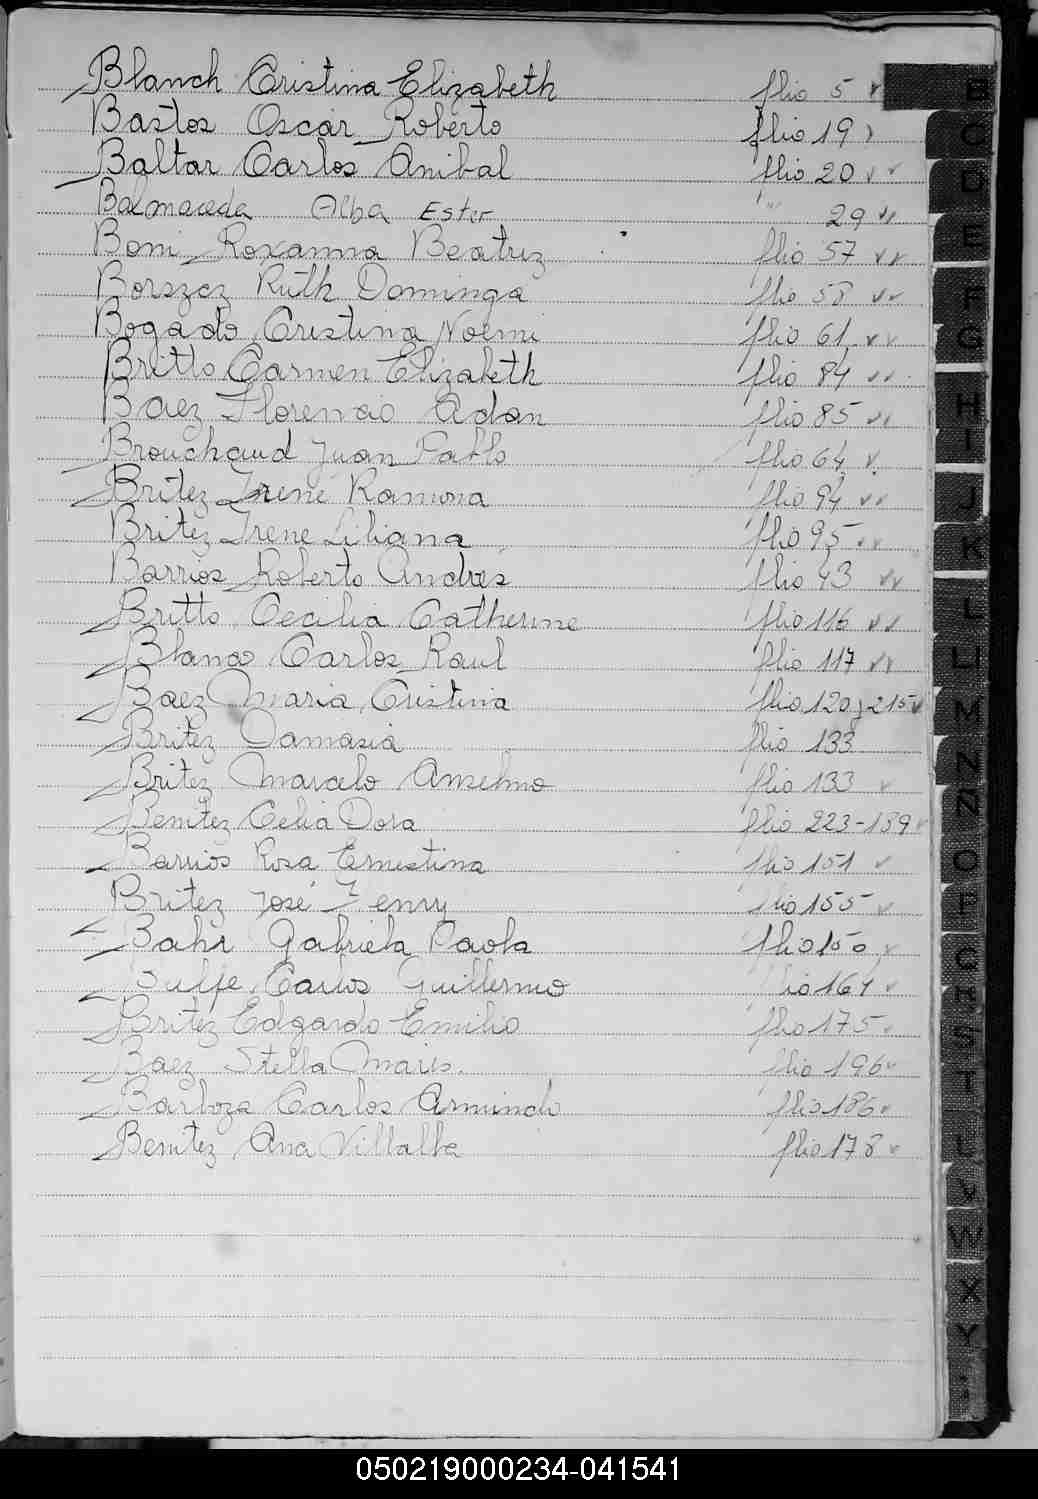 Blanch Cristina Elizabeth flio 5
Bastos Oscar Roberto flio 19
Baltar Carlos Anibal flio 20
Balmaceda Alba Ester " 29
Boni Roxanna Beatriz flio 57
Borszcz Ruth Dominga flio 58
Bogado Cristina Noemi flio 61
Britto Carmen Elizabeth flio 84
Baez Florencio Adan flio 85
Brouchaud Juan Pablo flio 64
Britez Irene Ramona flio 94
Britez Irene Liliana flio 95
Barrios Roberto Andres flio 43
Britto Cecilia Catherine flio 116
Blanco Carlos Raul flio 117
Baez Maria Cristina flio 120 y 215
Britez Damasia flio 133
Britez Marcelo Anselmo flio 133
Benitez Celia Dora flio 223-139
Barrios Rosa Ernestina flio 151
Britez José Henry flio 155
Bahr Gabriela Paola flio 150
Carlos Guillermo flio 164
Britez Edgardo Emilio flio 175
Baez Stella Maris. flio 196
Barboza Carlos Armindo flio 186
Benitez Ana Villalba flio 178
B
C
D
E
F
G
H
I
J
K
L
LI
M
N
Ñ
O
P
Q
R
S
T
V
W
X
Y
050219000234-041541